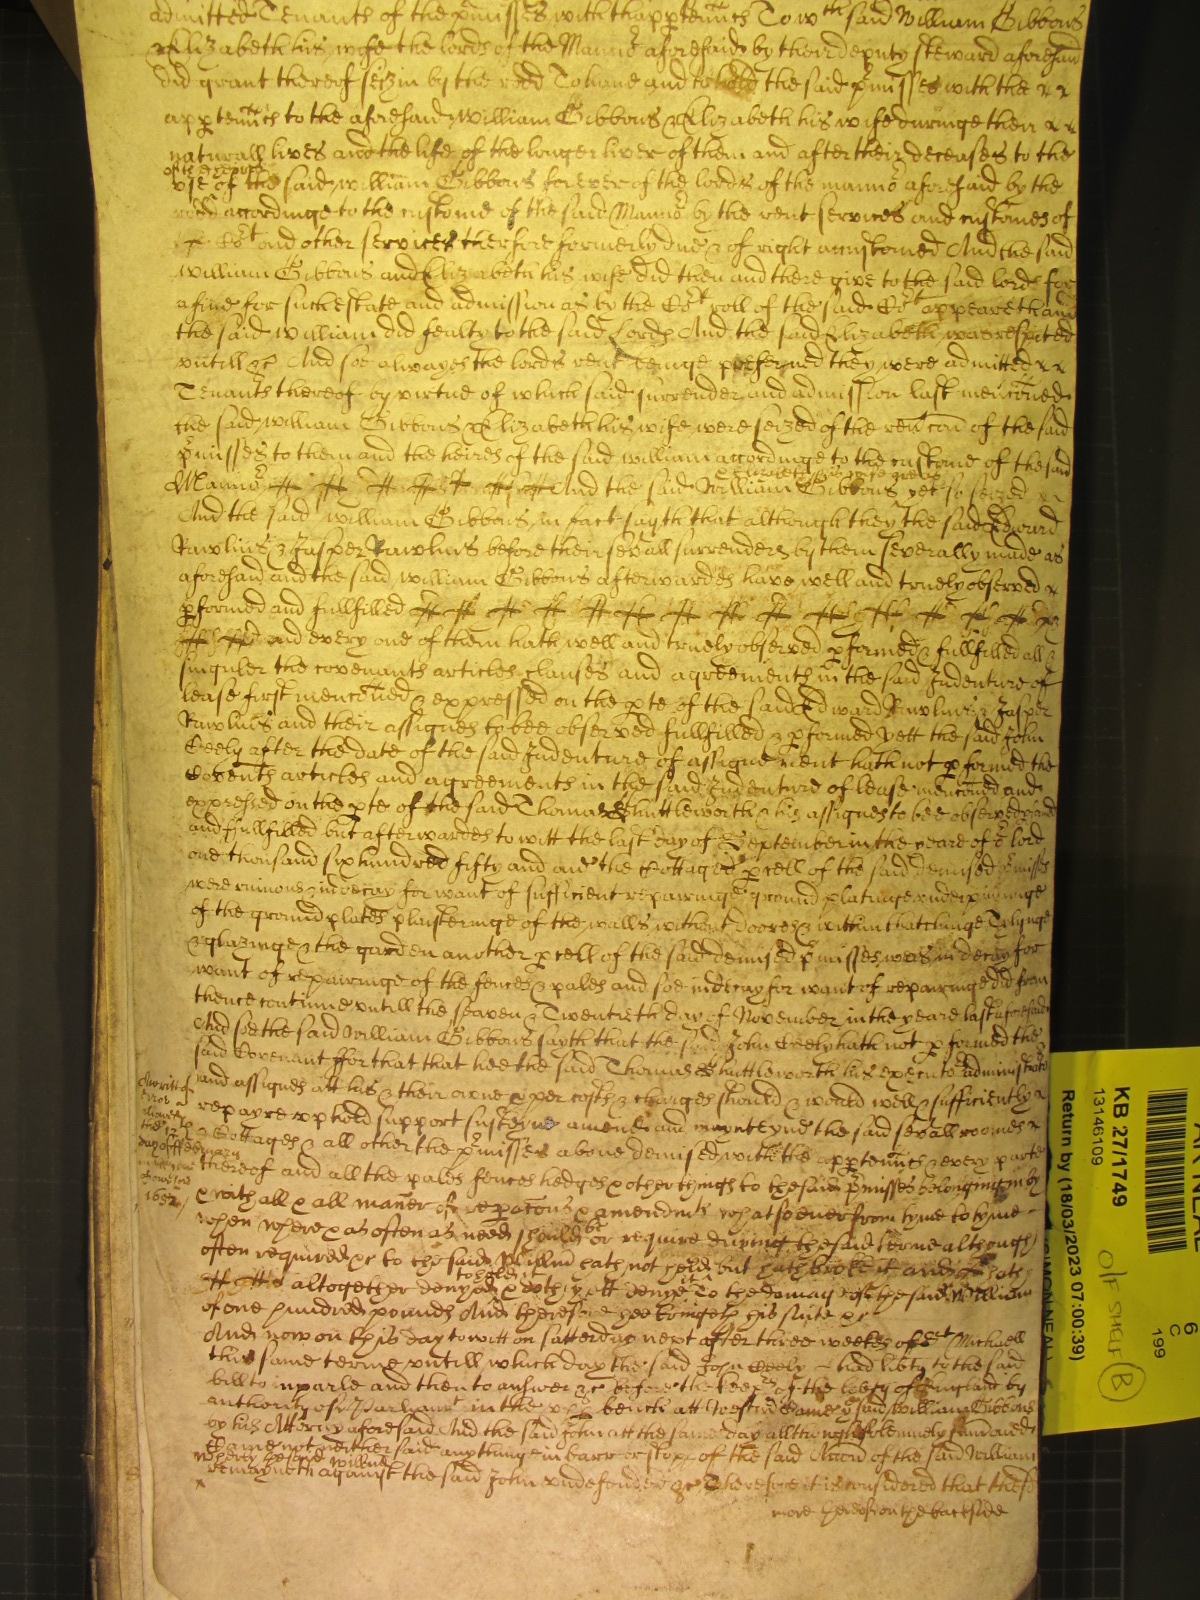 admitted Tenants of the p'misses with thapp'tenncs To wch said William Gibbons
& Elizabeth his wife the lords of the Mannor aforesaid by their deputy steward aforesaid
did grant thereof seizin by the rodd To have and to hold the said p'misses with the
app'tenncs to the aforesaid William Gibbons & Elizabeth his wife duringe their
naturall lives and the life of the longer liver of them and after their deceases to the
use of the said William Gibbons for ever of the lords of the mannor aforesaid by the
rodd accordinge to the custome of the said Mannor by the rent services and customes of
and other services therefore formerly due & of right accustomed And the said
William Gibbons and Elizabeth his wife did then and there give to the said lords for
a fine for such estate and admission as by the Cort roll of the said Cort appeareth and
the said William did fealty to the said Lords And the said Elizabeth was respited
untill &c And soe alwayes the lords rent beinge they were admitted
Tenants thereof by virtue of which said surrender and admission last menconed
the said William Gibbons & Elizabeth his wife were seized of the revcon of the said
p'misses to them and the heires of the said William accordinge to the custome of the said
& Elizabeth his wife
Mannor And the said William Gibbons yet so seized
And the said William Gibbons in fact sayth that although they the said Edward
Rawlins & Jasper Rawlins before their sev'all surrenders by them severally made as
aforesaid and the said William Gibbons afterwardes have well and truely observed
p'formed and fullfilled
and every one of them hath well and truely observed p'formed & fullfilled all &
singuler the covenants articles clauses and agreements in the said Indenture of
lease first menconed & expressed on the p'te of the said Edward Rawlins & Jasper
Rawlins and their assignes to bee observed fullfilled & p'formed Yett the said John
Ceely after the date of the said Indenture of assignement hath not p'formed the
Covents articles and agreements in the said Indenture of lease menconed and
expressed on the p'te of the said Thomas Shuttleworth & his assignes to bee observed
and fullfilled but afterwardes to witt the last day of September in the yeare of or lord
one thousand six hundred fifty and one the Cottages p'cell of the said demised p'misses
were ruinous & in decay for want of sufficient repairinge ground platinge underpinninge
of the ground plates plaisteringe of the walls without doores & within thatchinge Tylinge
& glazinge & the garden another p'cell of the said demised p'misses was in decay for
want of repairinge of the fences & pales and soe in decay for want of repairinge did from
thence continue untill the seaven & Twentieth day of November in the yeare last aforesaid
And soe the said William Gibbons sayth that the said John Ceely hath not p'formed the
said Covenant ffor that that hee the said Thomas Shuttleworth his executors administrators
and assignes att his & their owne p'per costs & charges should & would well & sufficiently
repayre uphold support susteyne amend and maynteyne the said sev'all roomes
& Cottages & all other the p'misses above demised with the app'tenncs & every parte
thereof and all the pales fences hedges & other things to the said p'misses belonginge
with all & all maner of repacons & amendmts whatsoever from tyme to tyme
when where & as often as need should be or require duringe the said terme although
often required &c to the said William hath not held but hath broke it and
to hold it
altogether denyed & doth yett denye it To the damage of the said William
of one hundred pounds And therefore hee bringeth his sute &c
And now on this day to witt on satterday next after three weekes of St Michaell
this same terme untill which day the said John Ceely had lib'ty to the said
bill to inparle and then to answer &c before the keep's of the lib'ty of England by
authority of Parliamt in the upp' bench att Westm' came ye said William Gibbons
by his Attorny aforesaid And the said John att the same day allthough solemnely demanded
Came not neither said any thinge in barr or stopp of the said Accon of the said William
whereby the said William
remayneth against the said John undefended &c Therefore it is considered that the sd
more hereof on the backside
A writt of
error
the 12
day of ffebruary
1652
KB 27/1749
13146109
Return by (18/03/2023 07:00:39)
Off shelf
B
6
C
199